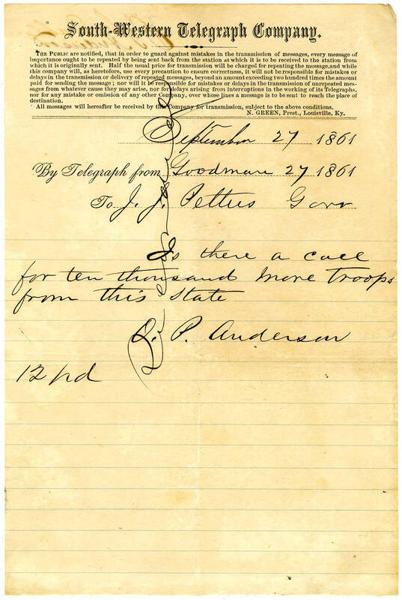 South-Western Telegraph Company.
THE PUBLIC are notified, that in order to guard against mistakes in the transmission of messages, every message of
importance ought to be repeated by being sent back from the station at which it is to be received to the station from
which it is originally sent. Half the usual price for transmission will be charged for repeating the message, and while
this company will, as heretofore, use every precaution to ensure correctness, it will not be responsible for mistakes or
delays in the transmission or delivery of repeated messages, beyond an amount exceeding two hundred times the amount
paid for sending the message; nor will it be responsible for mistakes or delays in the transmission of unrepeated mes-
sages from whatever cause they may arise, nor for delays arising from interruptions in the working of its Telegraphs,
nor for any mistake or omission of any other Company, over whose lines a message is to be sent to reach the place of
destination.
All messages will hereafter be received by this Company for transmission, subject to the above conditions.
N. GREEN, Prest., Louisville, Ky.
September 27 1861
By Telegraph from Goodman 27 1861
To J. J. Pettus Gov
Is there a call
for ten thousand more troops
from this State
P. Anderson
12 pd